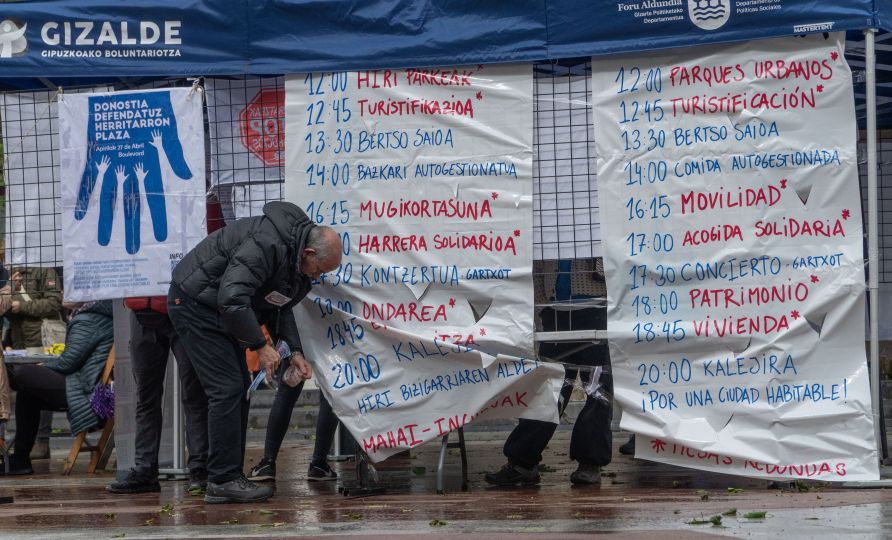 GIZALDE
GIPUZKOAKO BOLUNTARIOTZA
Foru Aldundia
Gizarte Politiketako
Departamentua
Departamento de
Políticas Sociales
MASTERTENT
DONOSTIA
DEFENDATUZ
HERRITARRON
PLAZA
Apirilak 27 de Abril
Boulevard
INFO
STOP
12:00 HIRI PARKEAK*
12:45 TURISTIFIKAZIOA*
13:30 BERTSO SAIOA
14:00 BAZKARI AUTOGESTIONATUA
16:15 MUGIKORTASUNA*
HARRERA SOLIDARIOA*
17:30 KONTZERTUA - GARTXOT
ONDAREA*
18:45
20:00 KALEJIRA
HIRI BIZIGARRIAREN ALDE!
MAHAI-
12:00 PARQUES URBANOS*
12:45 TURISTIFICACIÓN*
13:30 BERTSO SAIOA
14:00 COMIDA AUTOGESTIONADA
16:15 MOVILIDAD*
17:00 ACOGIDA SOLIDARIA*
17:30 CONCIERTO - GARTXOT
18:00 PATRIMONIO*
18:45 VIVIENDA*
20:00 KALEJIRA
¡POR UNA CIUDAD HABITABLE!
* MESAS REDONDAS